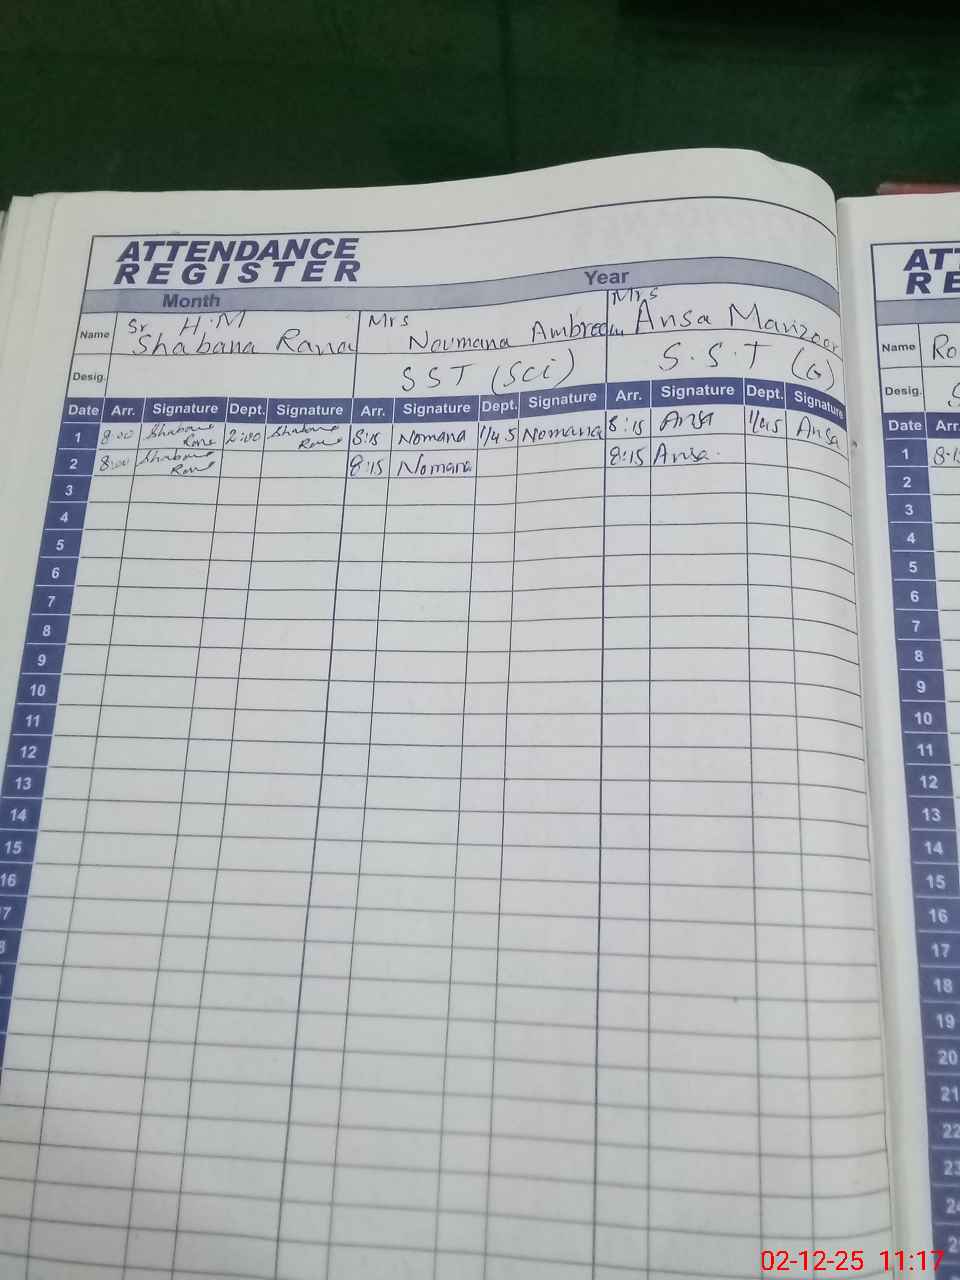 ATTENDANCE
REGISTER
Month Year
Name Sr H.M Shabana Rana Mrs Noumana Ambreen Mrs Ansa Manzoor
Desig. SST (Sci) S.S.T (G)
Date Arr. Signature Dept. Signature Arr. Signature Dept. Signature Arr. Signature Dept. Signature
1 8:00 Shabana Rana 2:00 Shabana Rana 8:15 Nomana 1/45 Nomana 8:15 Ansa 1/45 Ansa
2 8:00 Shabana Rana 8:15 Nomana 8:15 Ansa.
3
4
5
6
7
8
9
10
11
12
13
14
15
16
7
8
ATT
RE
Name Ro
Desig. S
Date Arr.
1 8:1
2
3
4
5
6
7
8
9
10
11
12
13
14
15
16
17
18
19
20
21
22
23
24
02-12-25 11:17